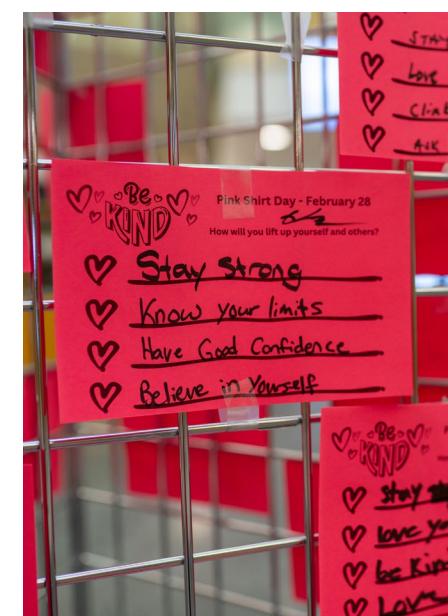 STAY
Love
Be
KIND
Pink Shirt Day - February 28
How will you lift up yourself and others?
Stay Strong
Know your limits
Have Good Confidence
Believe in Yourself
Be
KIND
stay
love
be Kin
Love